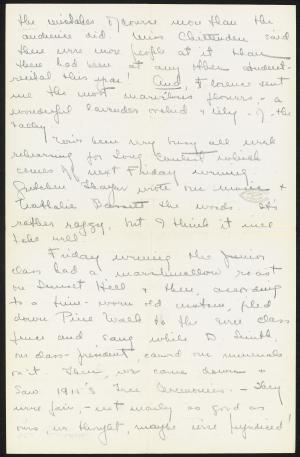 the mistakes of course more than the
audience did. Miss Chittenden said
there were more people at it than
there had been at any other student-
recital this year! And, Florence sent
me the most marvelous flowers, - a
wonderful lavender orchid & lily-of-the
valley.
You've been very busy all week
rehearsing for Song Contest which
comes off next Friday evening.
Gretchen wrote our music &
Nathalie the words. It's
rather raggy, but I think it will
take well.
Friday evening the Junior
class had a marshmallow roast
on Sunset Hill & then, according
to a time-worn old custom, filed
down Pine Walk to the class
fence and sang while D. Smith,
our class-president, carved our numerals
on it. Then, we came down &
saw 1911's Tree Ceremonies. - They
were fair, - not nearly as good as
ours, we thought, maybe we're prejudiced!